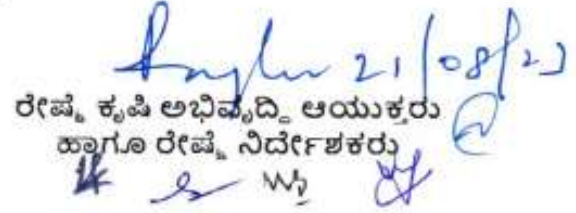 21/08/23
ರೇಷ್ಮೆ ಕೃಷಿ ಅಭಿವೃದ್ಧಿ ಆಯುಕ್ತರು
ಹಾಗೂ ರೇಷ್ಮೆ ನಿರ್ದೇಶಕರು